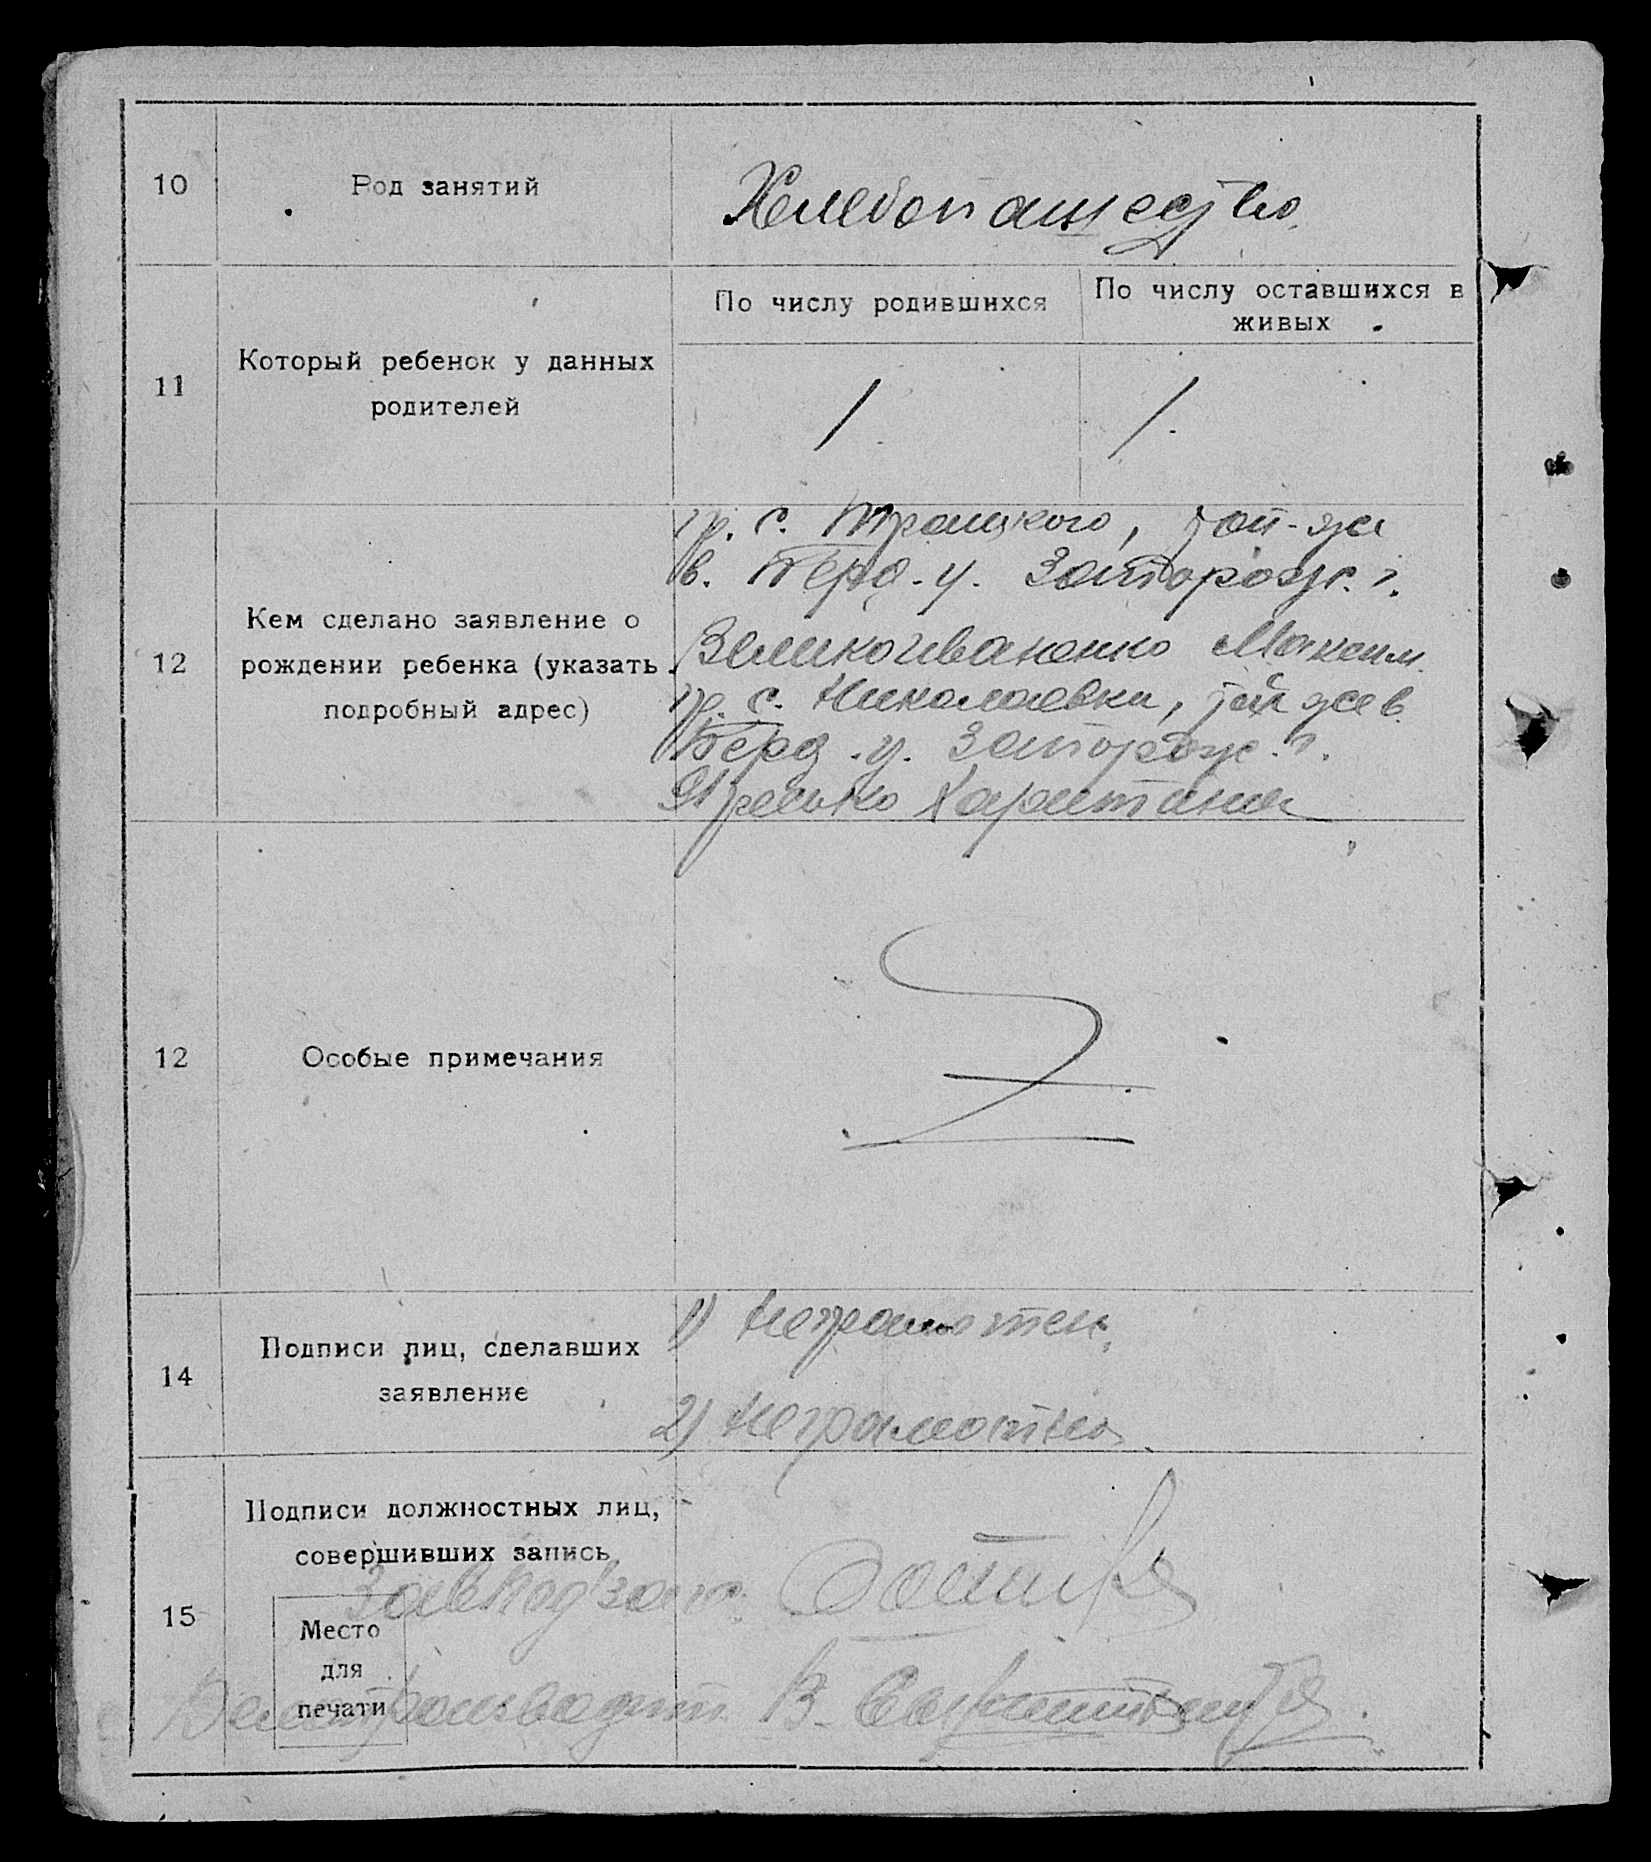 10
Род занятий
Хлебопашество.
11
Который ребенок у данных
родителей
По числу родившихся
По числу оставшихся в
живых
1
1.
12
Кем сделано заявление о
рождении ребенка (указать
подробный адрес)
гр. с. Троицкого, той-же
в. Берд. у. Запорож. г.
Великоиваненко Максим
гр. с. Николаевки, той же в.
Берд. у. Запорож. г.
Харитина
12
Особые примечания
14
Подписи лиц, сделавших
заявление
1) Неграмотен.
2) Неграмотна.
15
Подписи должностных лиц,
совершивших запись
Завподзаг.
Место
для
печати
Делопроизводит. В.